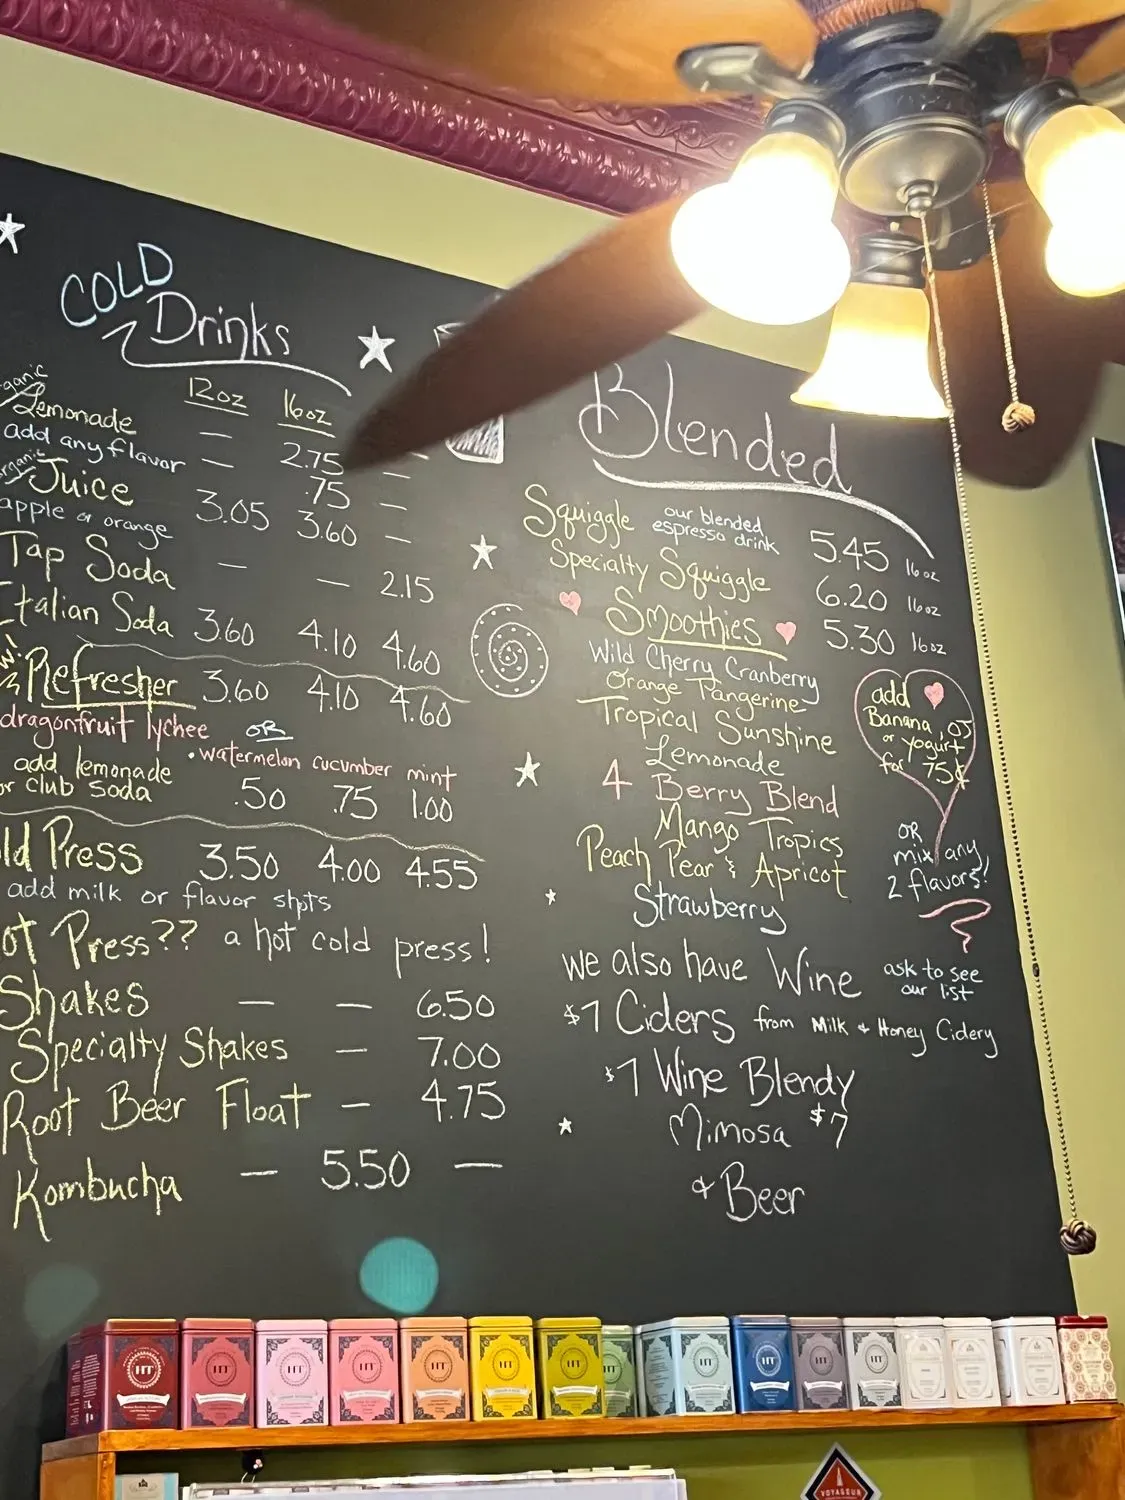 COLD
Drinks
12oz 16oz
Lemonade — 2.75 —
add any flavor — .75 —
Juice 3.05 3.60 —
apple or orange
Tap Soda — — 2.15
Italian Soda 3.60 4.10 4.60
Refresher 3.60 4.10 4.60
dragonfruit lychee OR
• watermelon cucumber mint
add lemonade
or club soda .50 .75 1.00
ld Press 3.50 4.00 4.55
add milk or flavor shots
ot Press?? a hot cold press!
Shakes — — 6.50
Specialty Shakes — 7.00
Root Beer Float — 4.75
Kombucha — 5.50 —
Blended
Squiggle our blended espresso drink 5.45 16oz
Specialty Squiggle 6.20 16oz
Smoothies 5.30 16oz
Wild Cherry Cranberry
Orange Tangerine
Tropical Sunshine
Lemonade
4 Berry Blend
Mango Tropics
Peach Pear & Apricot
Strawberry
add
Banana, OJ
or yogurt
for 75¢
OR
mix any
2 flavors!
we also have Wine ask to see our list
$7 Ciders from Milk & Honey Cidery
$7 Wine Blendy
Mimosa $7
& Beer
HT HT HT HT HT HT HT HT HT HT
VOYAGEUR